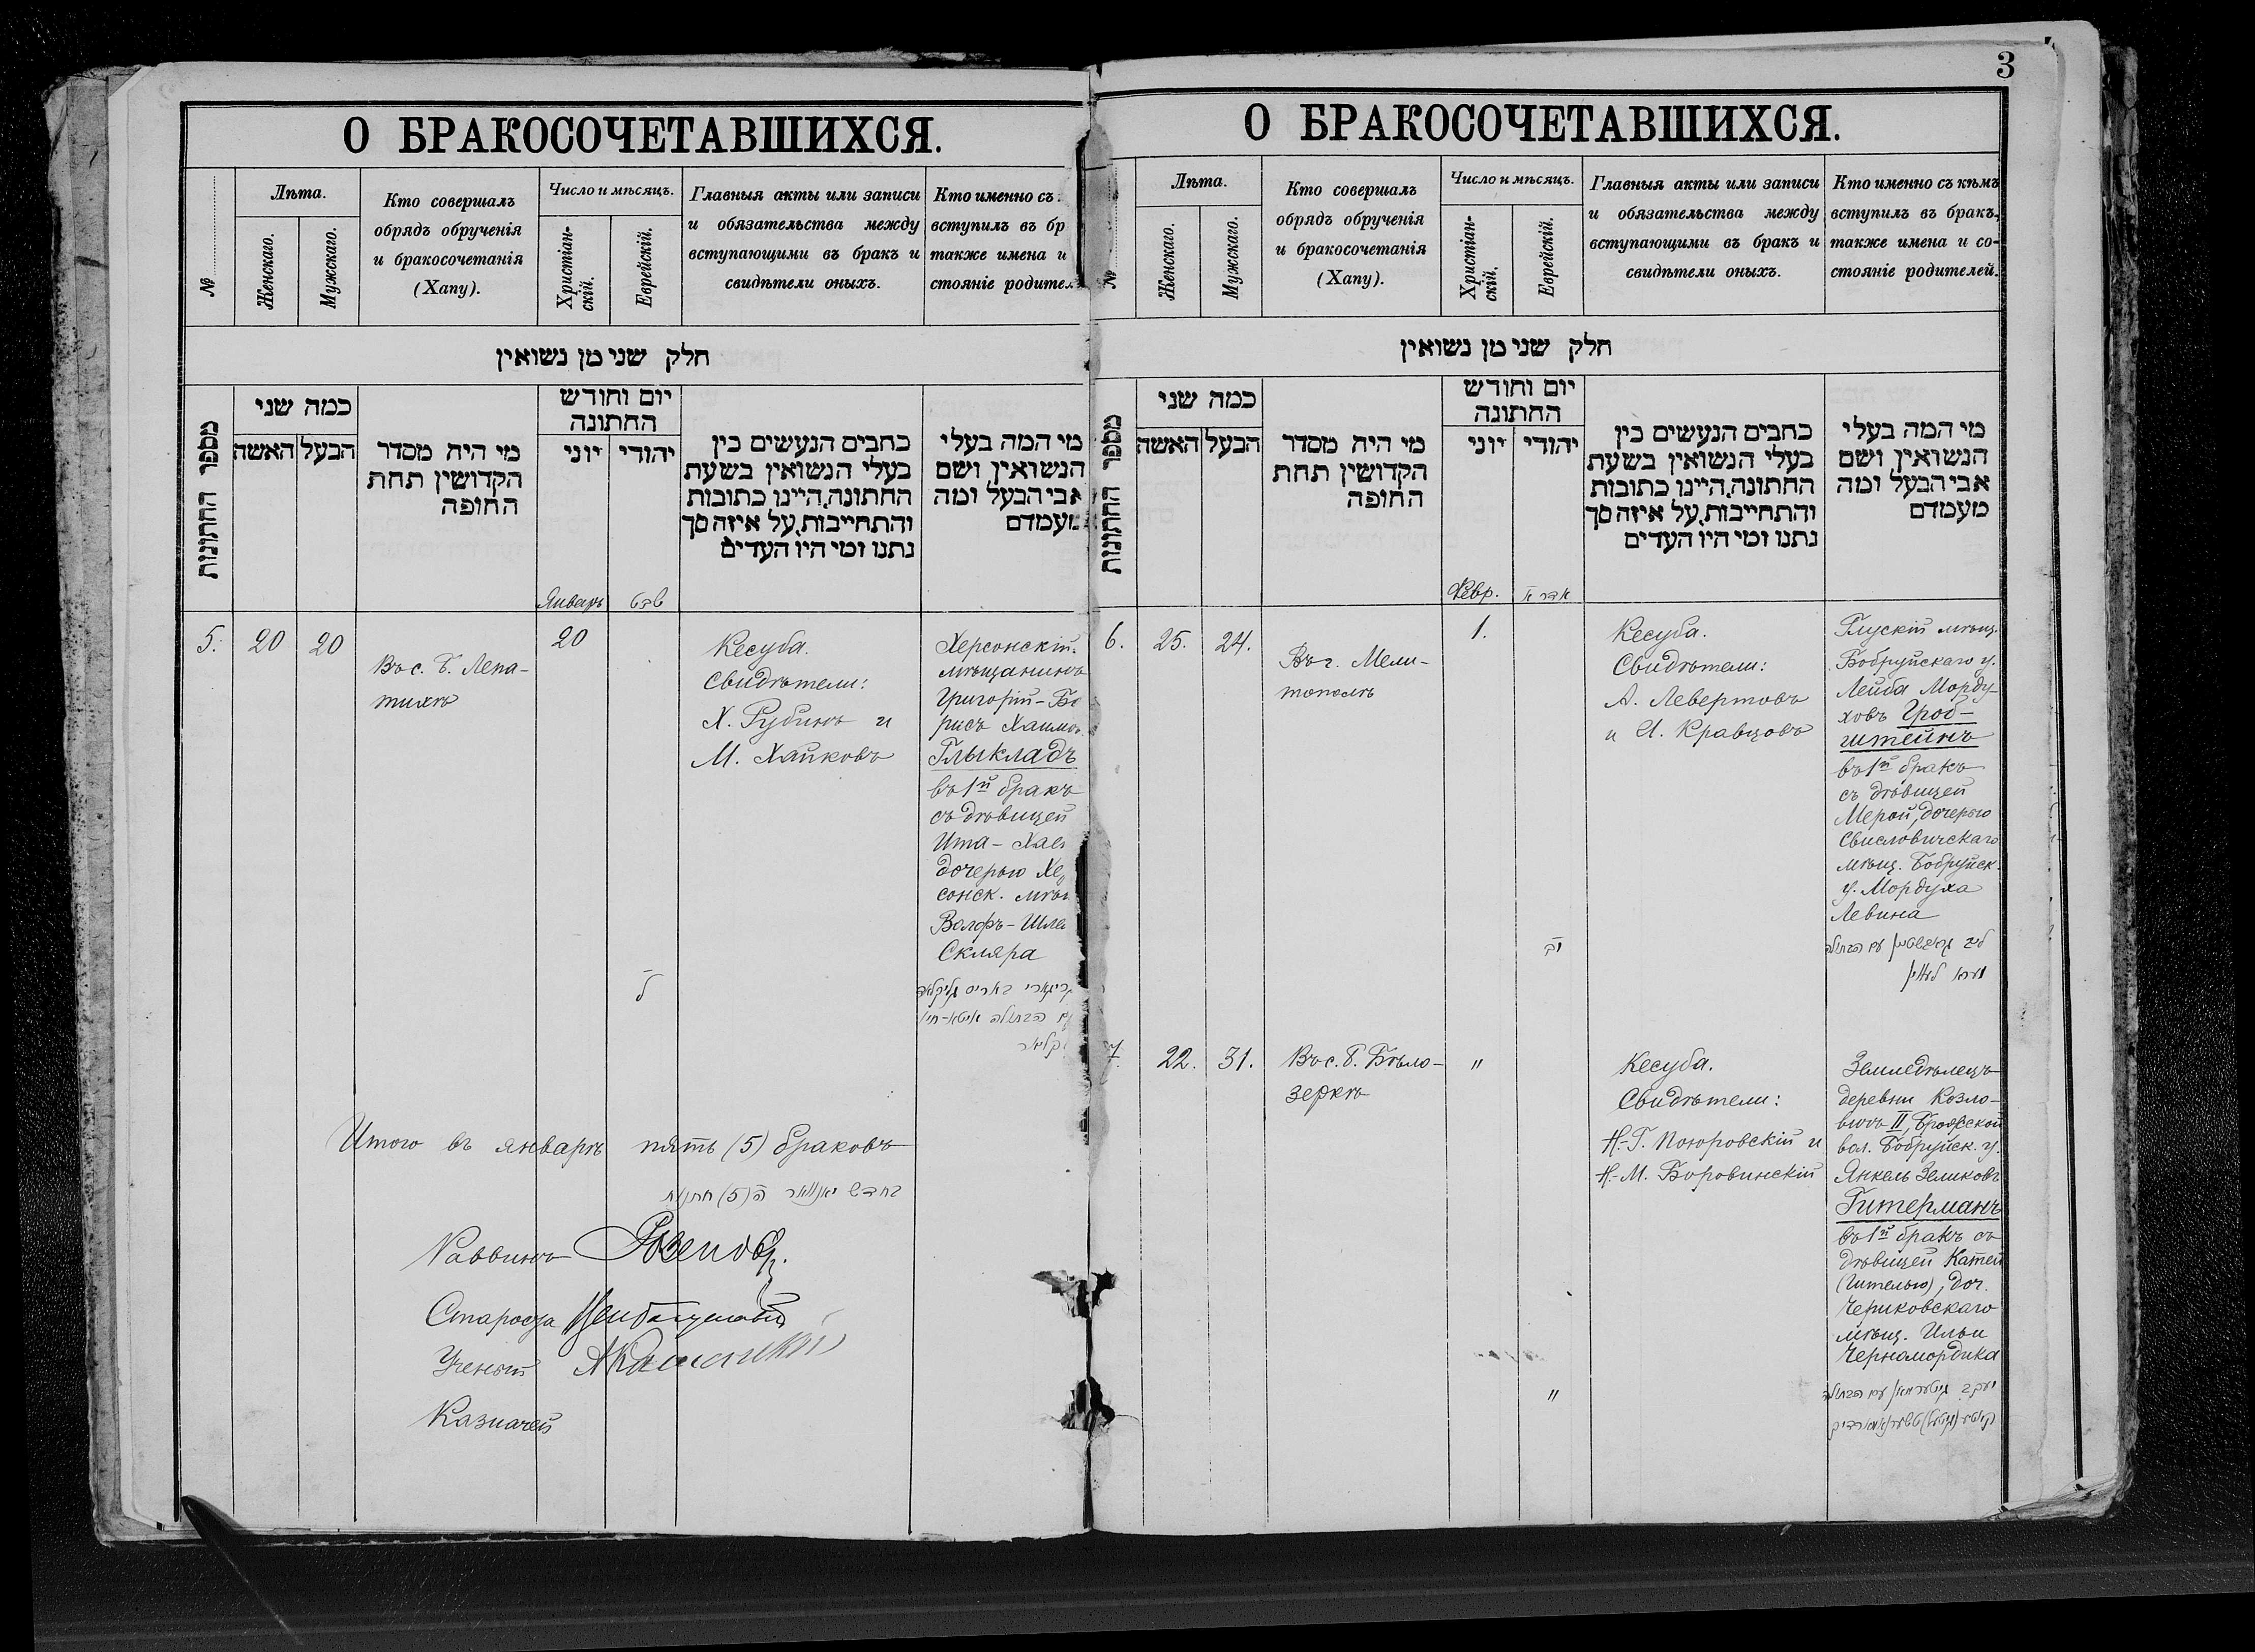 О БРАКОСОЧЕТАВШИХСЯ.
№
Лѣта.
Женскаго.
Мужскаго.
Кто совершалъ
обрядъ обрученія
и бракосочетанія
(Хапу).
Число и мѣсяцъ.
Христіан-
скій.
Еврейскій.
Главныя акты или записи
и обязательства между
вступающими въ бракъ и
свидѣтели оныхъ.
Кто именно съ
вступилъ въ бр
также имена и
стояніе родител
חלק שני מן נשואין
מספר החתונות
כמה שני
האשה
הבעל
מי היה מסדר
הקדושין תחת
החופה
יום וחודש
החתונה
יוני
יהודי
כתבים הנעשים בין
בעלי הנשואין בשעת
החתונה, היינו כתובות
והתחייבות, על איזה סך
נתנו ומי היו העדים
מי המה בעלי
הנשואין ושם
אבי הבעל ומה
מעמדם
Январь
שבט
5.
20
20
Въ с. Б. Лепа-
тихѣ
20
ל
Кесуба.
Свидѣтели:
Х. Рубинъ и
М. Хайковъ
Херсонскій
мѣщанинъ
Григорій-Бо
рисъ Хаимов
Глыкладъ
въ 1й бракъ
съ дѣвицей
Ита-Хае
дочерью Хер
сонск. мѣщ
Волфъ-Шле
Скляра
גריגארי באריס גליקלאד
עם הבתולה איטא-חיי
סקליאר
Итого въ январѣ пять (5) браковъ
בחדש יאנואר ה' (5) חתונות
Раввинъ
Староста
Ученый
Казначей
3
О БРАКОСОЧЕТАВШИХСЯ.
№
Лѣта.
Женскаго.
Мужскаго.
Кто совершалъ
обрядъ обрученія
и бракосочетанія
(Хапу).
Число и мѣсяцъ.
Христіан-
скій.
Еврейскій.
Главныя акты или записи
и обязательства между
вступающими въ бракъ и
свидѣтели оныхъ.
Кто именно съ кѣмъ
вступилъ въ бракъ,
также имена и со-
стояніе родителей.
חלק שני מן נשואין
מספר החתונות
כמה שני
האשה
הבעל
מי היה מסדר
הקדושין תחת
החופה
יום וחודש
החתונה
יוני
יהודי
כתבים הנעשים בין
בעלי הנשואין בשעת
החתונה, היינו כתובות
והתחייבות, על איזה סך
נתנו ומי היו העדים
מי המה בעלי
הנשואין ושם
אבי הבעל ומה
מעמדם
Февр.
אדר א
6.
25.
24.
Въ г. Мели-
тополѣ
1.
יב
Кесуба.
Свидѣтели:
А. Левертовъ
и И. Кравцовъ
Глускій мѣщ.
Бобруйскаго у.
Лейба Морду-
ховъ Гроб-
штейнъ
въ 1й бракъ
съ дѣвицей
Мерой, дочерью
Свисловичскаго
мѣщ. Бобруйск.
у. Мордуха
Левина
ליב גראבשטיין עם הבתולה
מערא לעווין
7.
22.
31.
Въ с. Б. Бѣло-
зеркѣ
"
"
Кесуба.
Свидѣтели:
Н.-Г. Поюровскій и
Н.-М. Боровинскій
Земледѣлецъ
деревни Козло-
вичъ II, Брожской
вол. Бобруйск. у.
Янкель Зеликовъ
Гитерманъ
въ 1й бракъ съ
дѣвицей Катей
(Гителью), доч.
Чериковскаго
мѣщ. Ильи
Черномордика
יעקב גיטערמאן עם הבתולה
קאטע (גיטל) טשערנאמארדיק